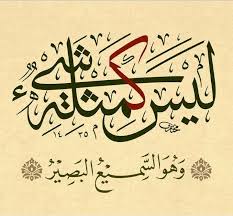 ليس كمثله شيء
١٤٣٥ م
وَهُوَ السَّمِيْعُ البَصِيْرُ